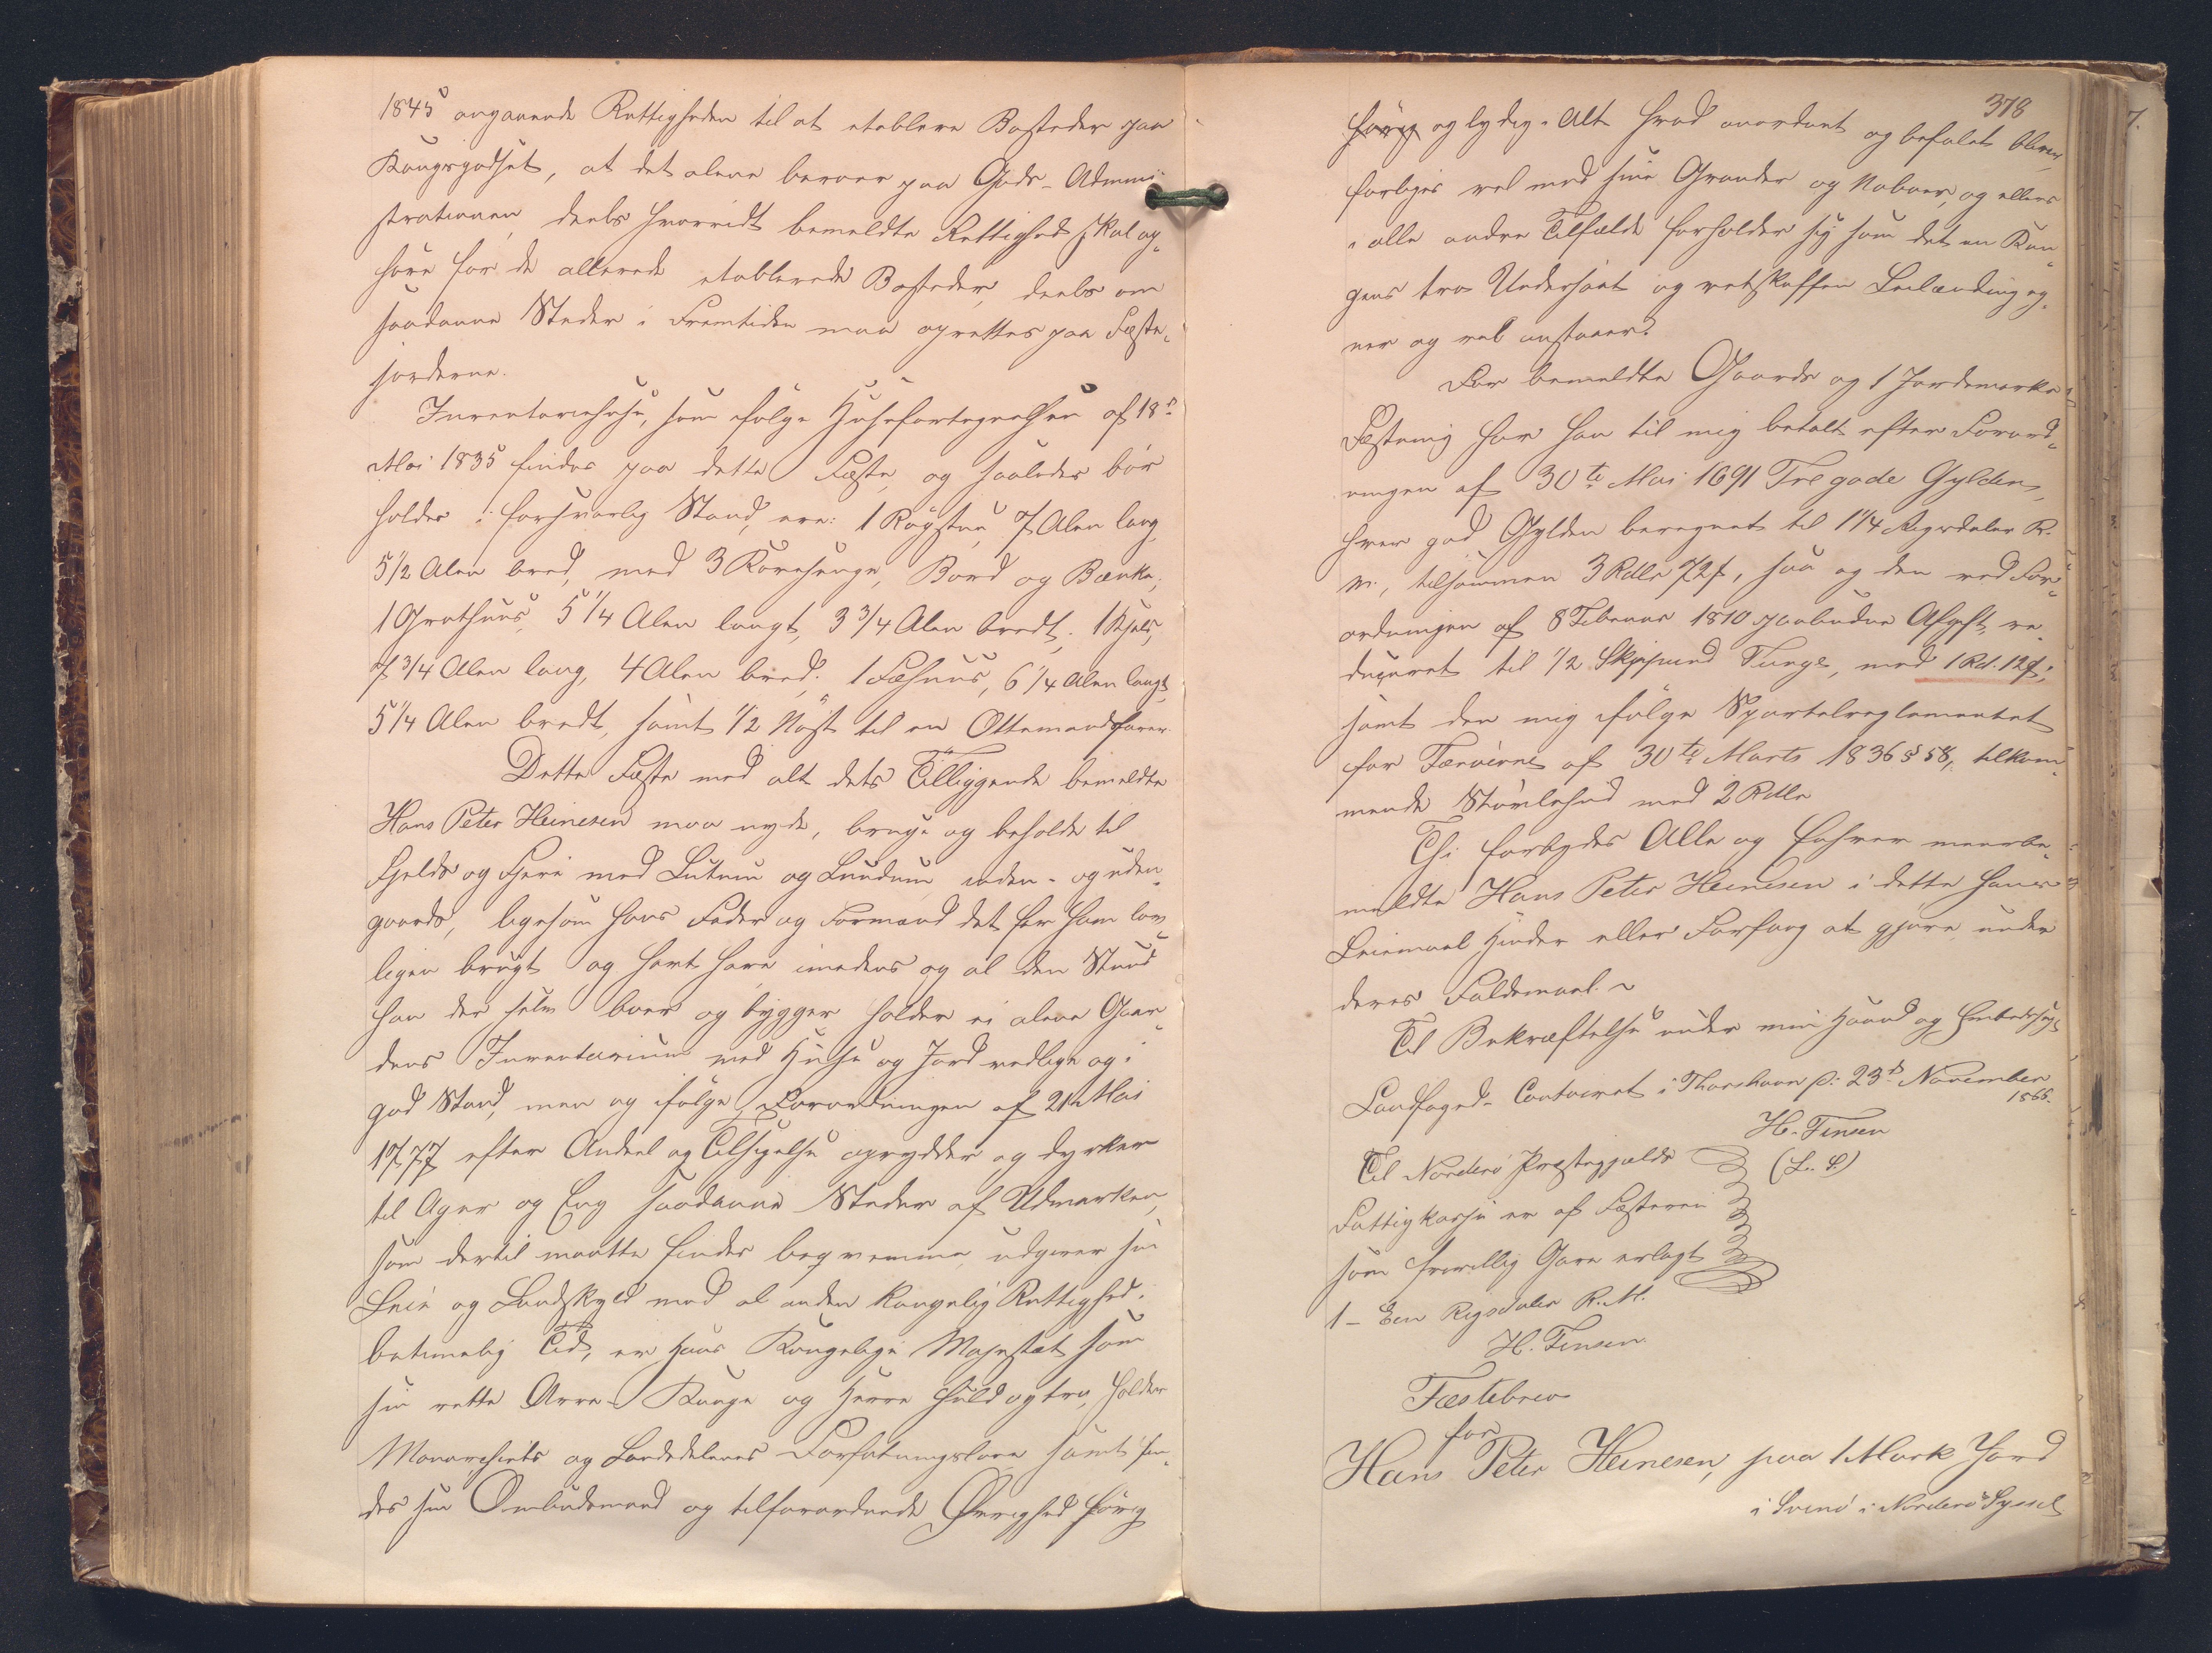 1845 angaaende Rettigheden til at etablere Bosteder paa
Kongsgodset, at det alene beroer paa Gods-Admini-
strationen, deels hvorvidt bemeldte Rettighed skal op-
høre for de allerede etablerede Bosteder, deels om
saadanne Steder i Fremtiden maa oprettes paa Fæste-
jorderne.
Inventariehuse, som ifølge Husefortegnelsen af 18de
Mai 1835 findes paa dette Fæste, og saaledes bør
holdes i forsvarlig Stand, ere: 1 Røgstue, 7 Alen lang,
5 1/2 Alen bred, med 3 Kovesenge, Bord og Bænke;
1 Grothuus, 5 1/4 Alen langt, 3 3/4 Alen bredt; 1 Hjeld,
7 3/4 Alen lang, 4 Alen bred; 1 Fæhuus, 6 1/4 Alen langt,
5 1/4 Alen bredt, samt 1/2 Nøst til en Ottemandsfarer.
Dette Fæste med alt dets Tilliggende bemeldte
Hans Peter Heinesen maa nyde, bruge og beholde til
Fjelds og Fjære med Lutum og Lundum inden- og uden-
gaards, ligesom hans Fader og Formand det før ham lov-
ligen brugt og havt have imedens og al den Stund
han der selv boer og bygger, holder ei alene Gaar-
dens Inventarium med Huse og Jord vedlige og i
god Stand, men og ifølge Forordningen af 21 Mai
1777 efter Andeel og Tilsigelse oprydder og dyrker
til Ager og Eng saadanne Steder af Udmarken,
som dertil maatte findes beqvemme, udgiver sin
Leie og Landskyld med al anden kongelig Rettighed i
betimelig Tid, er Hans Kongelige Majestæt som
sin rette Arve-Konge og Herre huld og tro, holder
Monarchiets og Landsdelenes Forfatningslove samt fin-
des sin Ombudsmand og tilforordnede Øvrighed hørig
378
hørig og lydig i Alt hvad anordnet og befalet bliver,
forliges vel med sine Grander og Naboer, og ellers
i alle andre Tilfælde forholder sig som det en Kon-
gens tro Undersaat og retskaffen Leilænding eg-
ner og vel anstaaer.
For bemeldte Gaards og 1 Jordemarks
Fæstning har han til mig betalt efter Forord-
ningen af 30te Mai 1691 Tre gode Gylden,
hver god Gylden beregnet til 1 1/4 Rigsdaler R.
M., tilsammen 3 Rdlr 72 s, saa og den ved For-
ordningen af 8 Februar 1810 paabudne Afgift, re-
duceret til 1/2 Skippund Tunge, med 1 Rd. 12 s;
samt den mig ifølge Sportelreglementet
for Færøerne af 30te Marts 1836 § 58, tilkom-
mende Støvlehud med 2 Rdlr
Thi forbydes Alle og Enhver meerbe-
meldte Hans Peter Heinesen i dette hans
Leiemaal Hinder eller Forfang at gjøre under
deres Faldsmaal. ~
Til Bekræftelse under min Haand og Embedssegl
Landfoged-Contoiret i Thorshavn p: 23de November
1866.
H. Finsen
(L. S.)
Til Norderø Præstegjelds
Fattigkasse er af Fæsteren
som frivillig Gave erlagt
1 - Een Rigsdaler R. M.
H. Finsen
Fæstebrev
for
Hans Peter Heinesen, paa 1 Mark Jord
i Svinø i Norderø Syssel